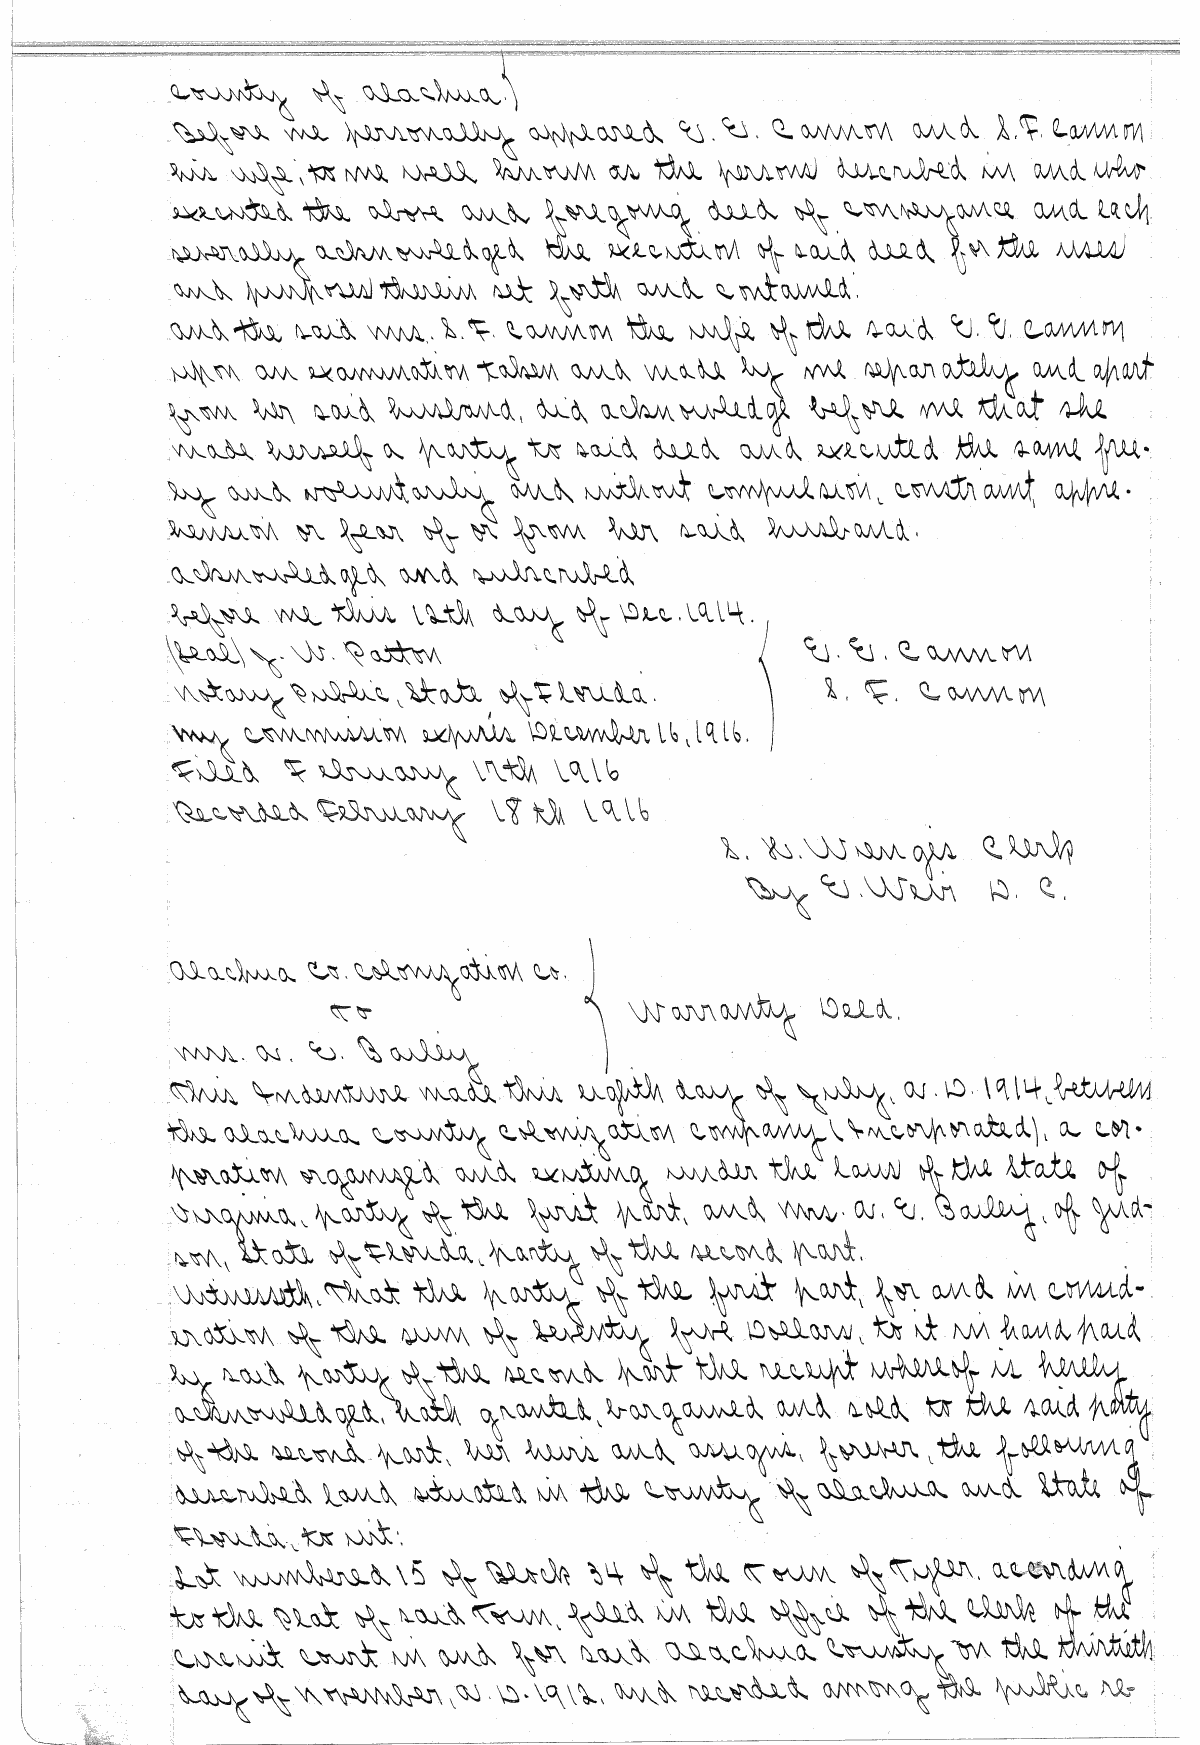 County of Alachua.)
Before me personally appeared E. E. Cannon and S. F. Cannon
his wife, to me well known as the persons described in and who
executed the above and foregoing deed of conveyance and each
severally acknowledged the execution of said deed for the uses
and purposes therein set forth and contained.
And the said Mrs. S. F. Cannon the wife of the said E. E. Cannon
upon an examination taken and made by me separately and apart
from her said husband, did acknowledge before me that she
made herself a party to said deed and executed the same free-
ly and voluntarily and without compulsion, constraint, appre-
hension or fear of or from her said husband.
Acknowledged and subscribed
before me this 12th day of Dec. 1914.
(Seal) J. W. Patton
E. E. Cannon
Notary Public, State of Florida.
S. F. Cannon
My commission expires December 16, 1916.
Filed February 17th 1916
Recorded February 18th 1916
S. H. Wienges Clerk
By E. Weir D. C.
Alachua Co. Colonization Co.
To
Warranty Deed.
Mrs. A. E. Bailey
This Indenture made this eighth day of July, A. D. 1914, between
the Alachua County Colonization Company (Incorporated), a cor-
poration organized and existing under the laws of the State of
Virginia, party of the first part, and Mrs. A. E. Bailey, of Jud-
son, State of Florida, party of the second part.
Witnesseth, That the party of the first part, for and in consid-
eration of the sum of Seventy five Dollars, to it in hand paid
by said party of the second part the receipt whereof is hereby
acknowledged, hath granted, bargained and sold to the said party
of the second part, her heirs and assigns, forever, the following
described land situated in the County of Alachua and State of
Florida, to wit:
Lot numbered 15 of Block 34 of the Town of Tyler, according
to the Plat of said Town, filed in the office of the Clerk of the
Circuit Court in and for said Alachua County on the thirtieth
day of November, A. D. 1912, and recorded among the public re-